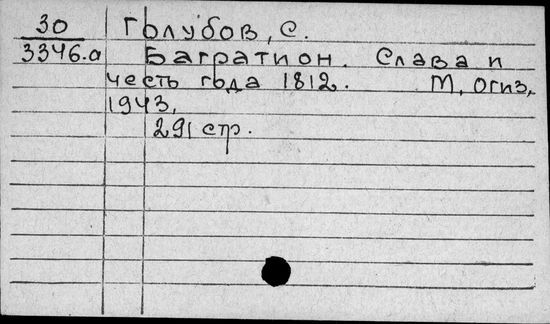 30 Голубов, С.
3346.а Багратион. Слава и
честь года 1812. М, Огиз,
1943.
291 стр.